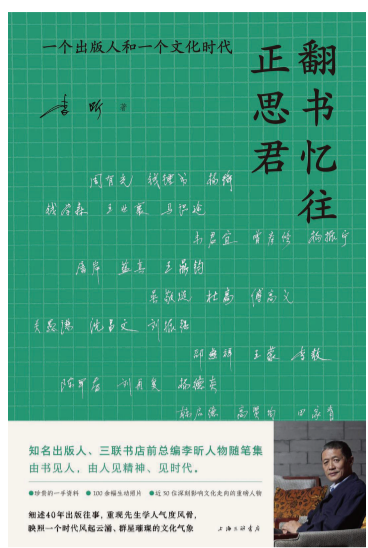 翻书忆往
正思君
一个出版人和一个文化时代
李昕 著
周有光 钱锺书 杨绛
马识途
韦君宜 曾彦修 杨振宁
屠岸 蓝真 王鼎钧
吴敬琏 杜高 傅高义
沈昌文 刘振强
邵燕祥 王蒙 李敖
陈早春 刘再复 杨德炎
知名出版人、三联书店前总编李昕人物随笔集
由书见人，由人见精神、见时代。
●珍贵的一手资料 ●100余幅生动照片 ●近30位深刻影响文化走向的重磅人物
细述40年出版往事，重现先生学人气度风骨，
映照一个时代风起云涌、群星璀璨的文化气象
上海三联书店